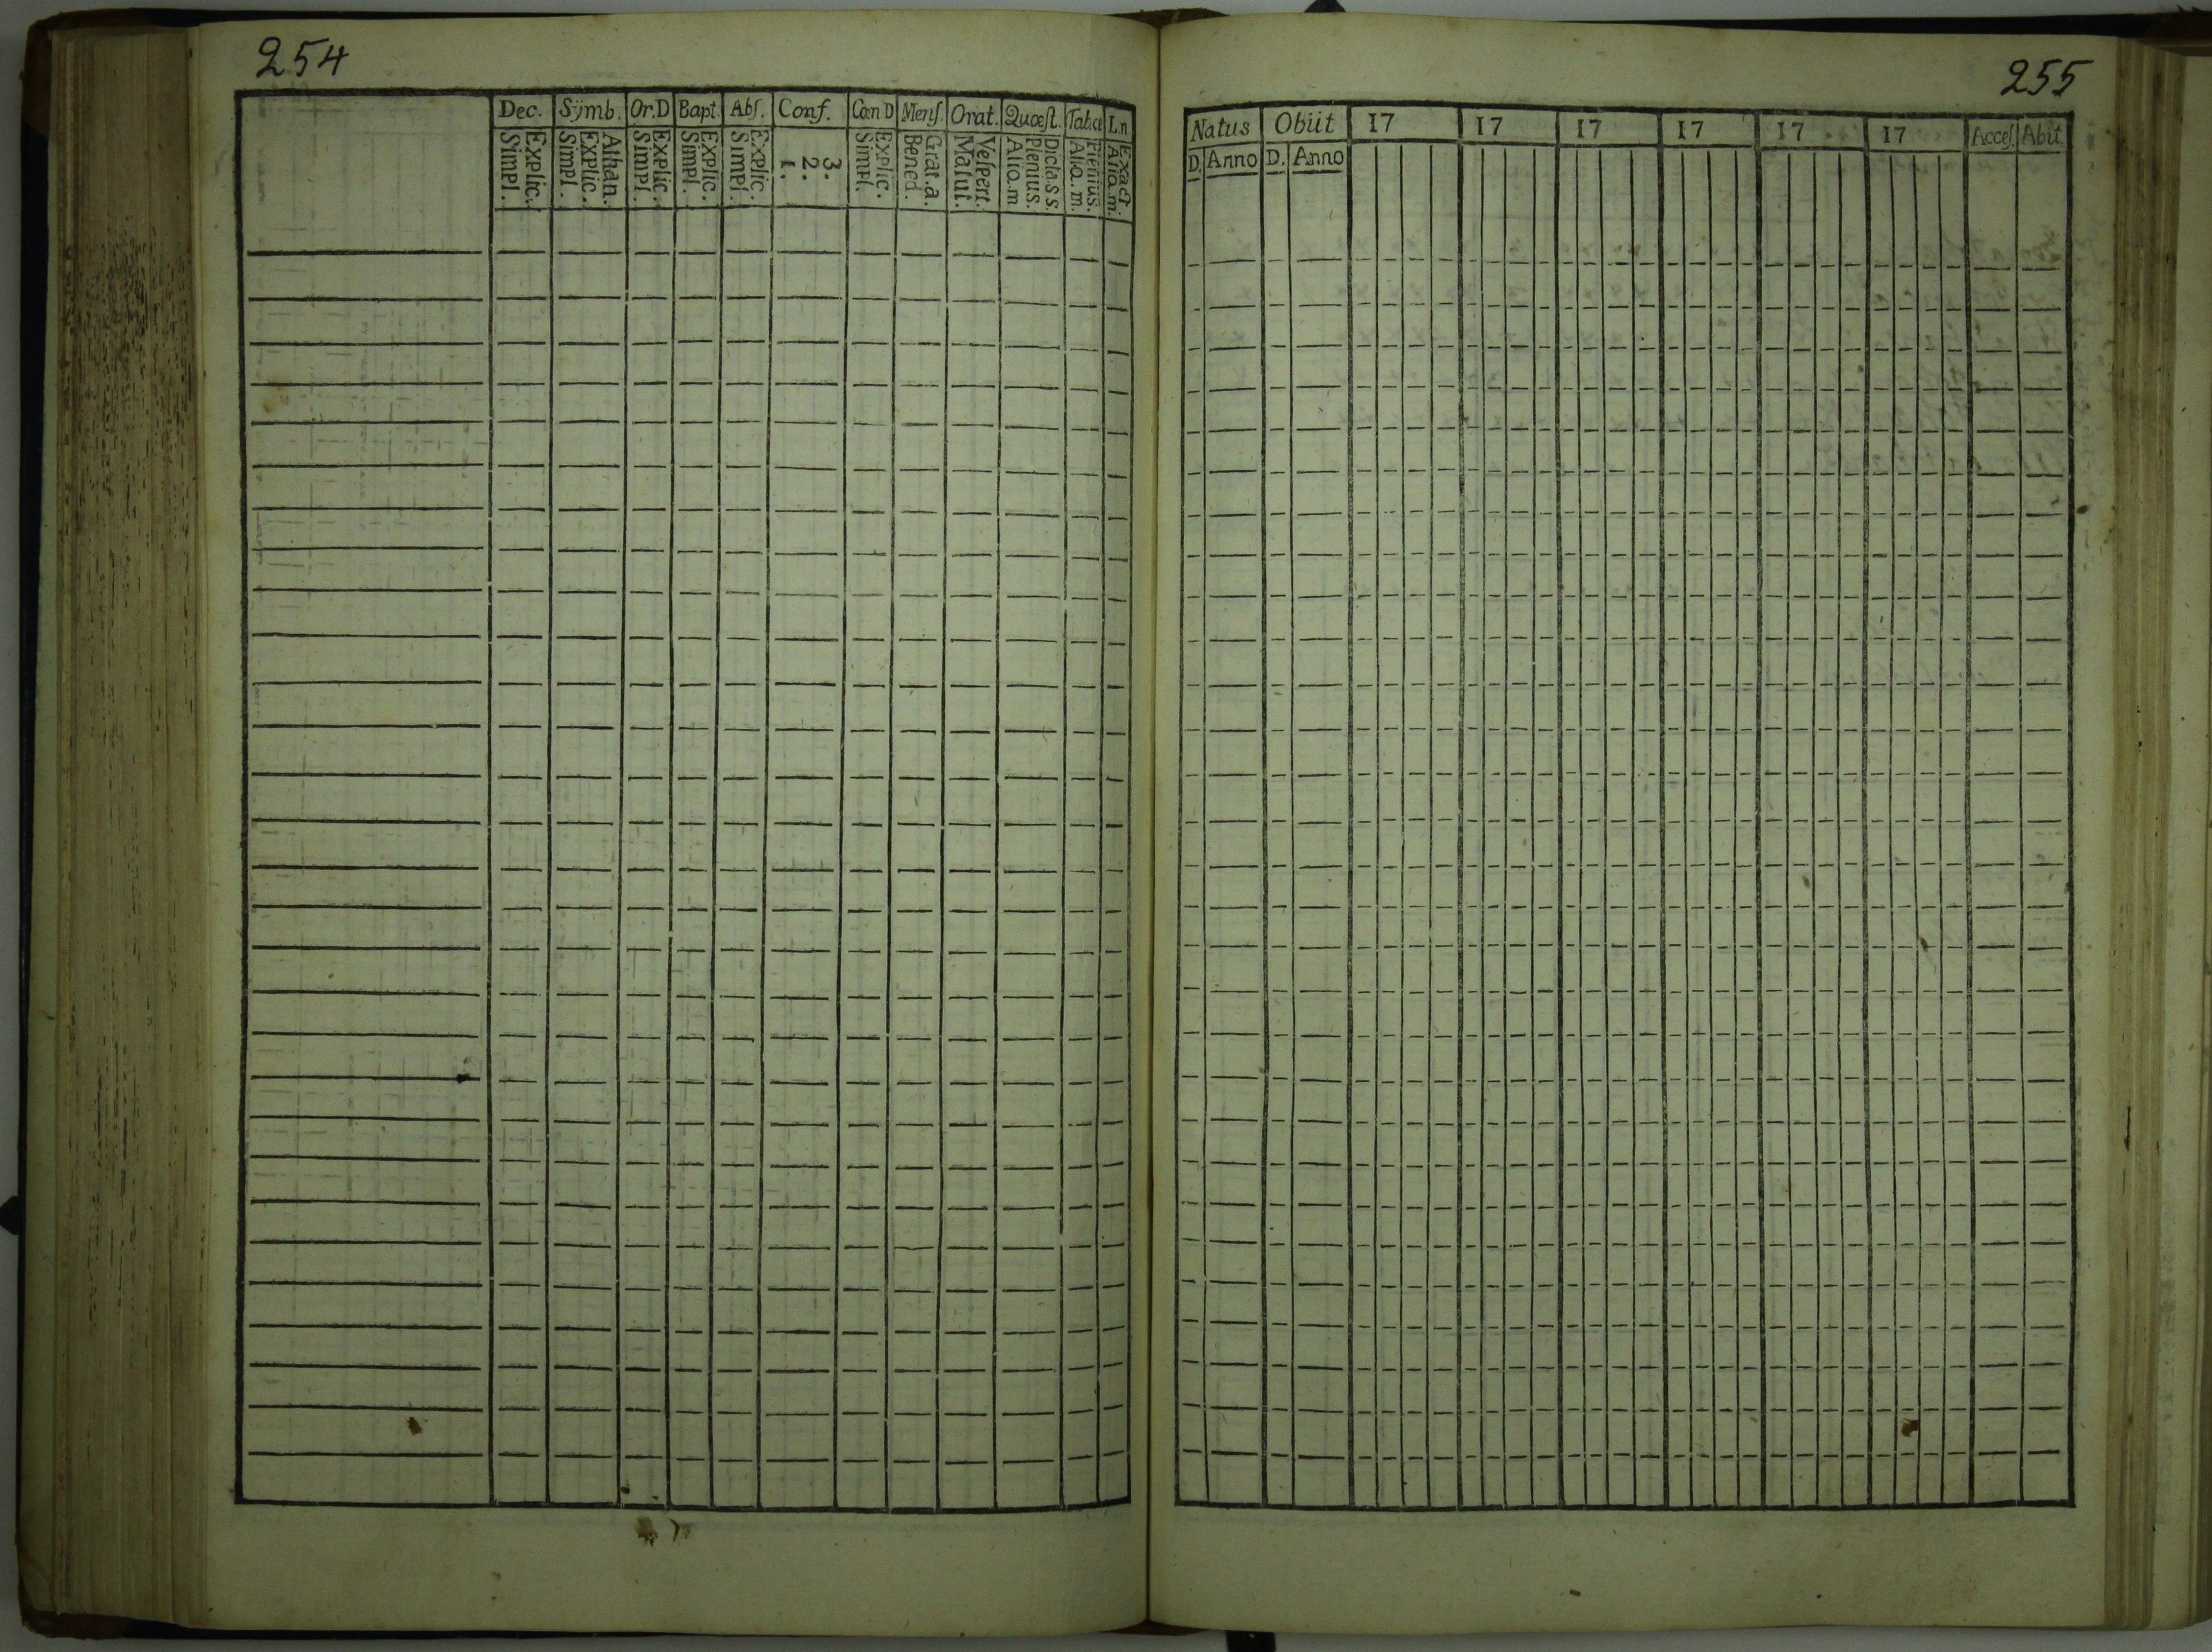 254
Dec. Sÿmb. Or.D Bapt. Abſ. Conf. Cœn D Menſ. Orat. Quæſt. Tab.œ L.n
Simpl. Explic. Simpl. Explic. Athan. Simpl. Explic. Simpl. Explic. Simpl. Explic. 1. 2. 3. Simpl. Explic. Bened. Grat.a. Matut. Veſpert. Alio.m Plenius. Dicta.s s. Alia.m. Plenius. Alia.m. Exact.
255
Natus Obiit 17 17 17 17 17 17 Acceſ. Abit
D. Anno D. Anno